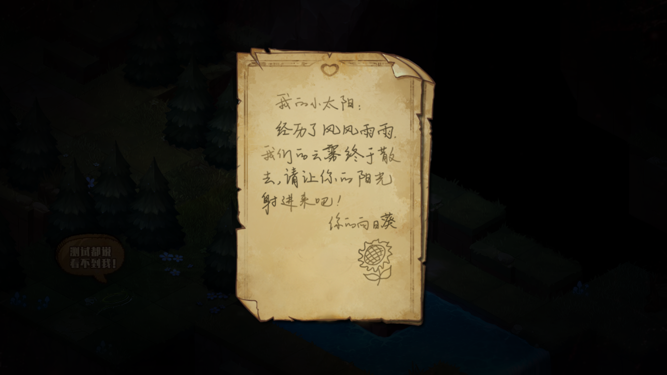 我的小太阳：
经历了风风雨雨，
我们的云雾终于散
去，请让你的阳光
射进来吧！
你的向日葵
测试都说
看不到我！